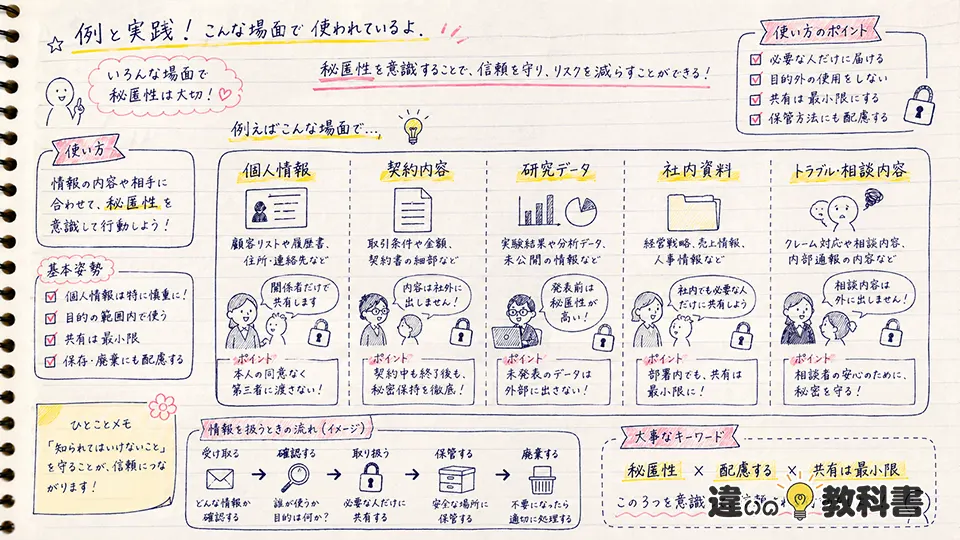 例と実践！こんな場面で使われているよ.
いろんな場面で
秘匿性は大切！
秘匿性を意識することで、信頼を守り、リスクを減らすことができる！
使い方のポイント
必要な人だけに届ける
目的外の使用をしない
共有は最小限にする
保管方法にも配慮する
使い方
情報の内容や相手に
合わせて、秘匿性を
意識して行動しよう！
基本姿勢
個人情報は特に慎重に！
目的の範囲内で使う
共有は最小限
保存・廃棄にも配慮する
ひとことメモ
「知られてはいけないこと」
を守ることが、信頼につな
がります！
例えばこんな場面で…
個人情報
顧客リストや履歴書、
住所・連絡先など
関係者だけで
共有します
ポイント
本人の同意なく
第三者に渡さない！
契約内容
取引条件や金額、
契約書の細部など
内容は社外に
出しません！
ポイント
契約中も終了後も、
秘密保持を徹底！
研究データ
実験結果や分析データ、
未公開の情報など
発表前は
秘匿性が
高い！
ポイント
未発表のデータは
外部に出さない！
社内資料
経営戦略、売上情報、
人事情報など
社内でも必要な人
だけに共有しよう
ポイント
部署内でも、共有は
最小限に！
トラブル・相談内容
クレーム対応や相談内容、
内部通報の内容など
相談内容は
外に出しません！
ポイント
相談者の安心のために、
秘密を守る！
情報を扱うときの流れ（イメージ）
受け取る
どんな情報か
確認する
確認する
誰が使うか
目的は何か？
取り扱う
必要な人だけに
共有する
保管する
安全な場所に
保管する
廃棄する
不要になったら
適切に処理する
大事なキーワード
秘匿性 × 配慮する × 共有は最小限
この3つを意識
違いの教科書